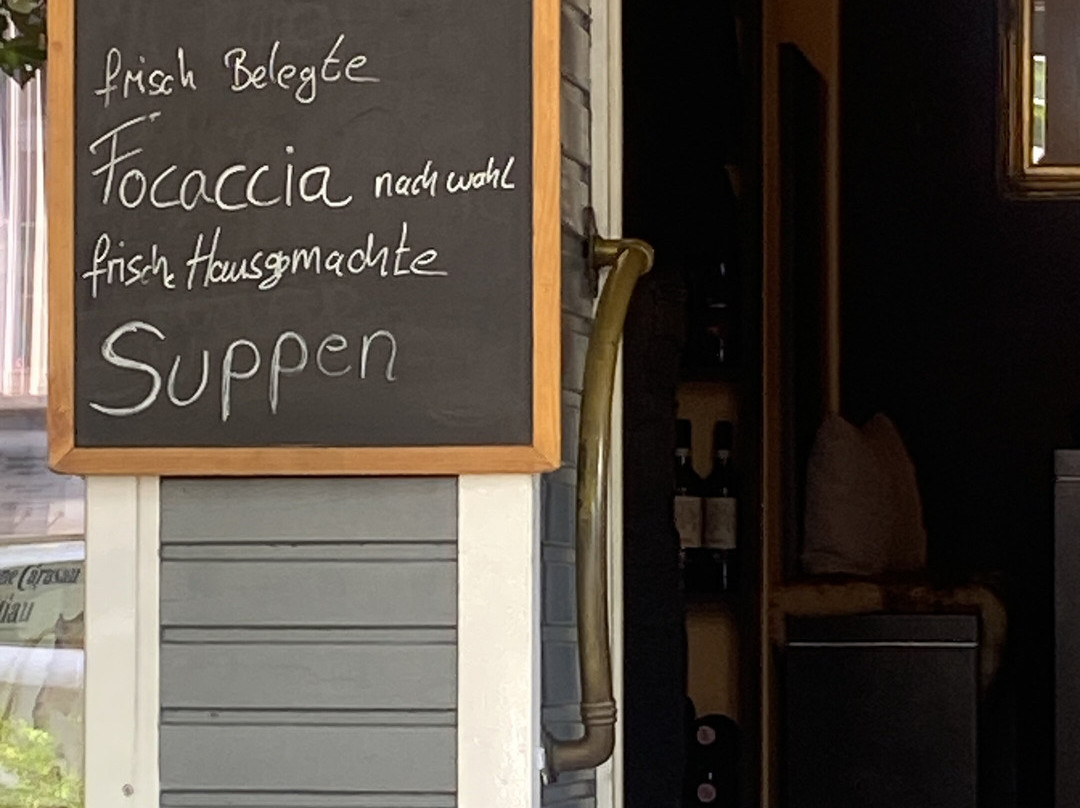 frisch Belegte
Focaccia nach wahl
frische Hausgemachte
Suppen
Carasau